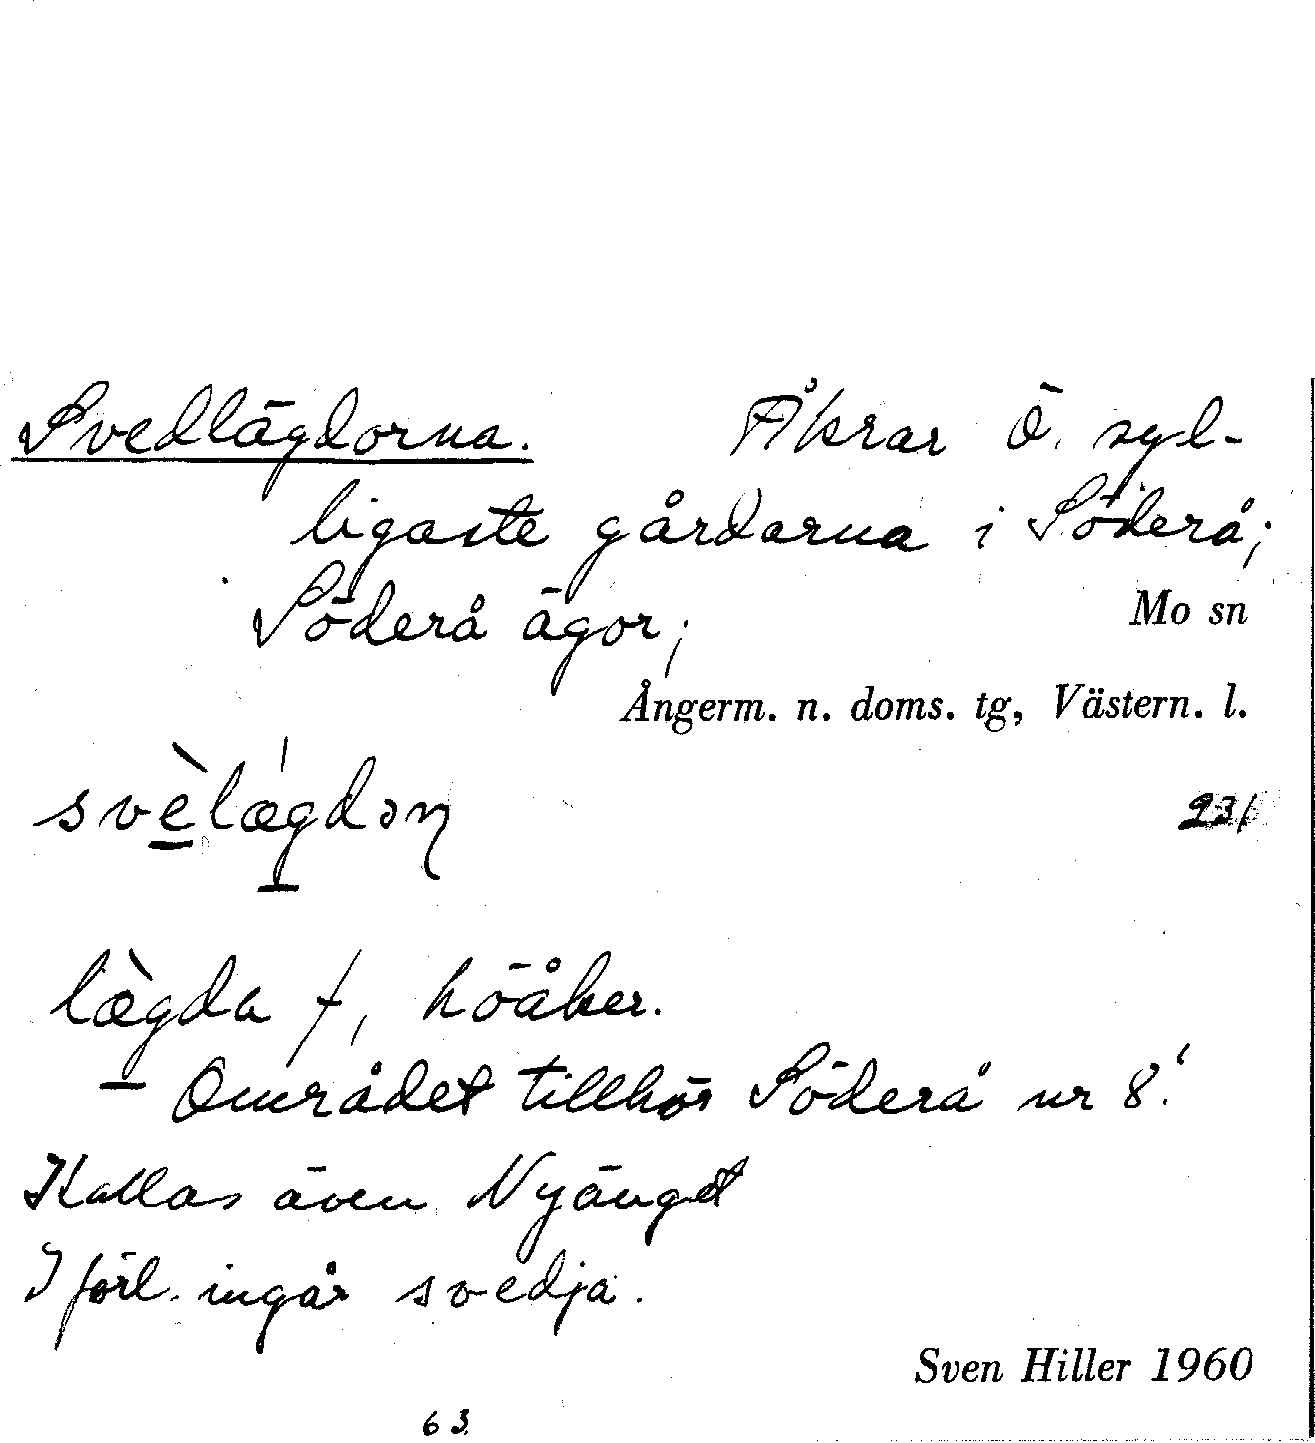 Svedlägdorna. Åkrar Ö. syd-
ligaste gårdarna i Söderå;
Söderå ägor; Mo sn
Ångerm. n. doms. tg, Västern. l.
svèlægdɔṇ
lægda f, höåker.
Området tillhör Söderå nr 8!
Kallas även Nyänget
I förl. ingår svedja.
Sven Hiller 1960
63